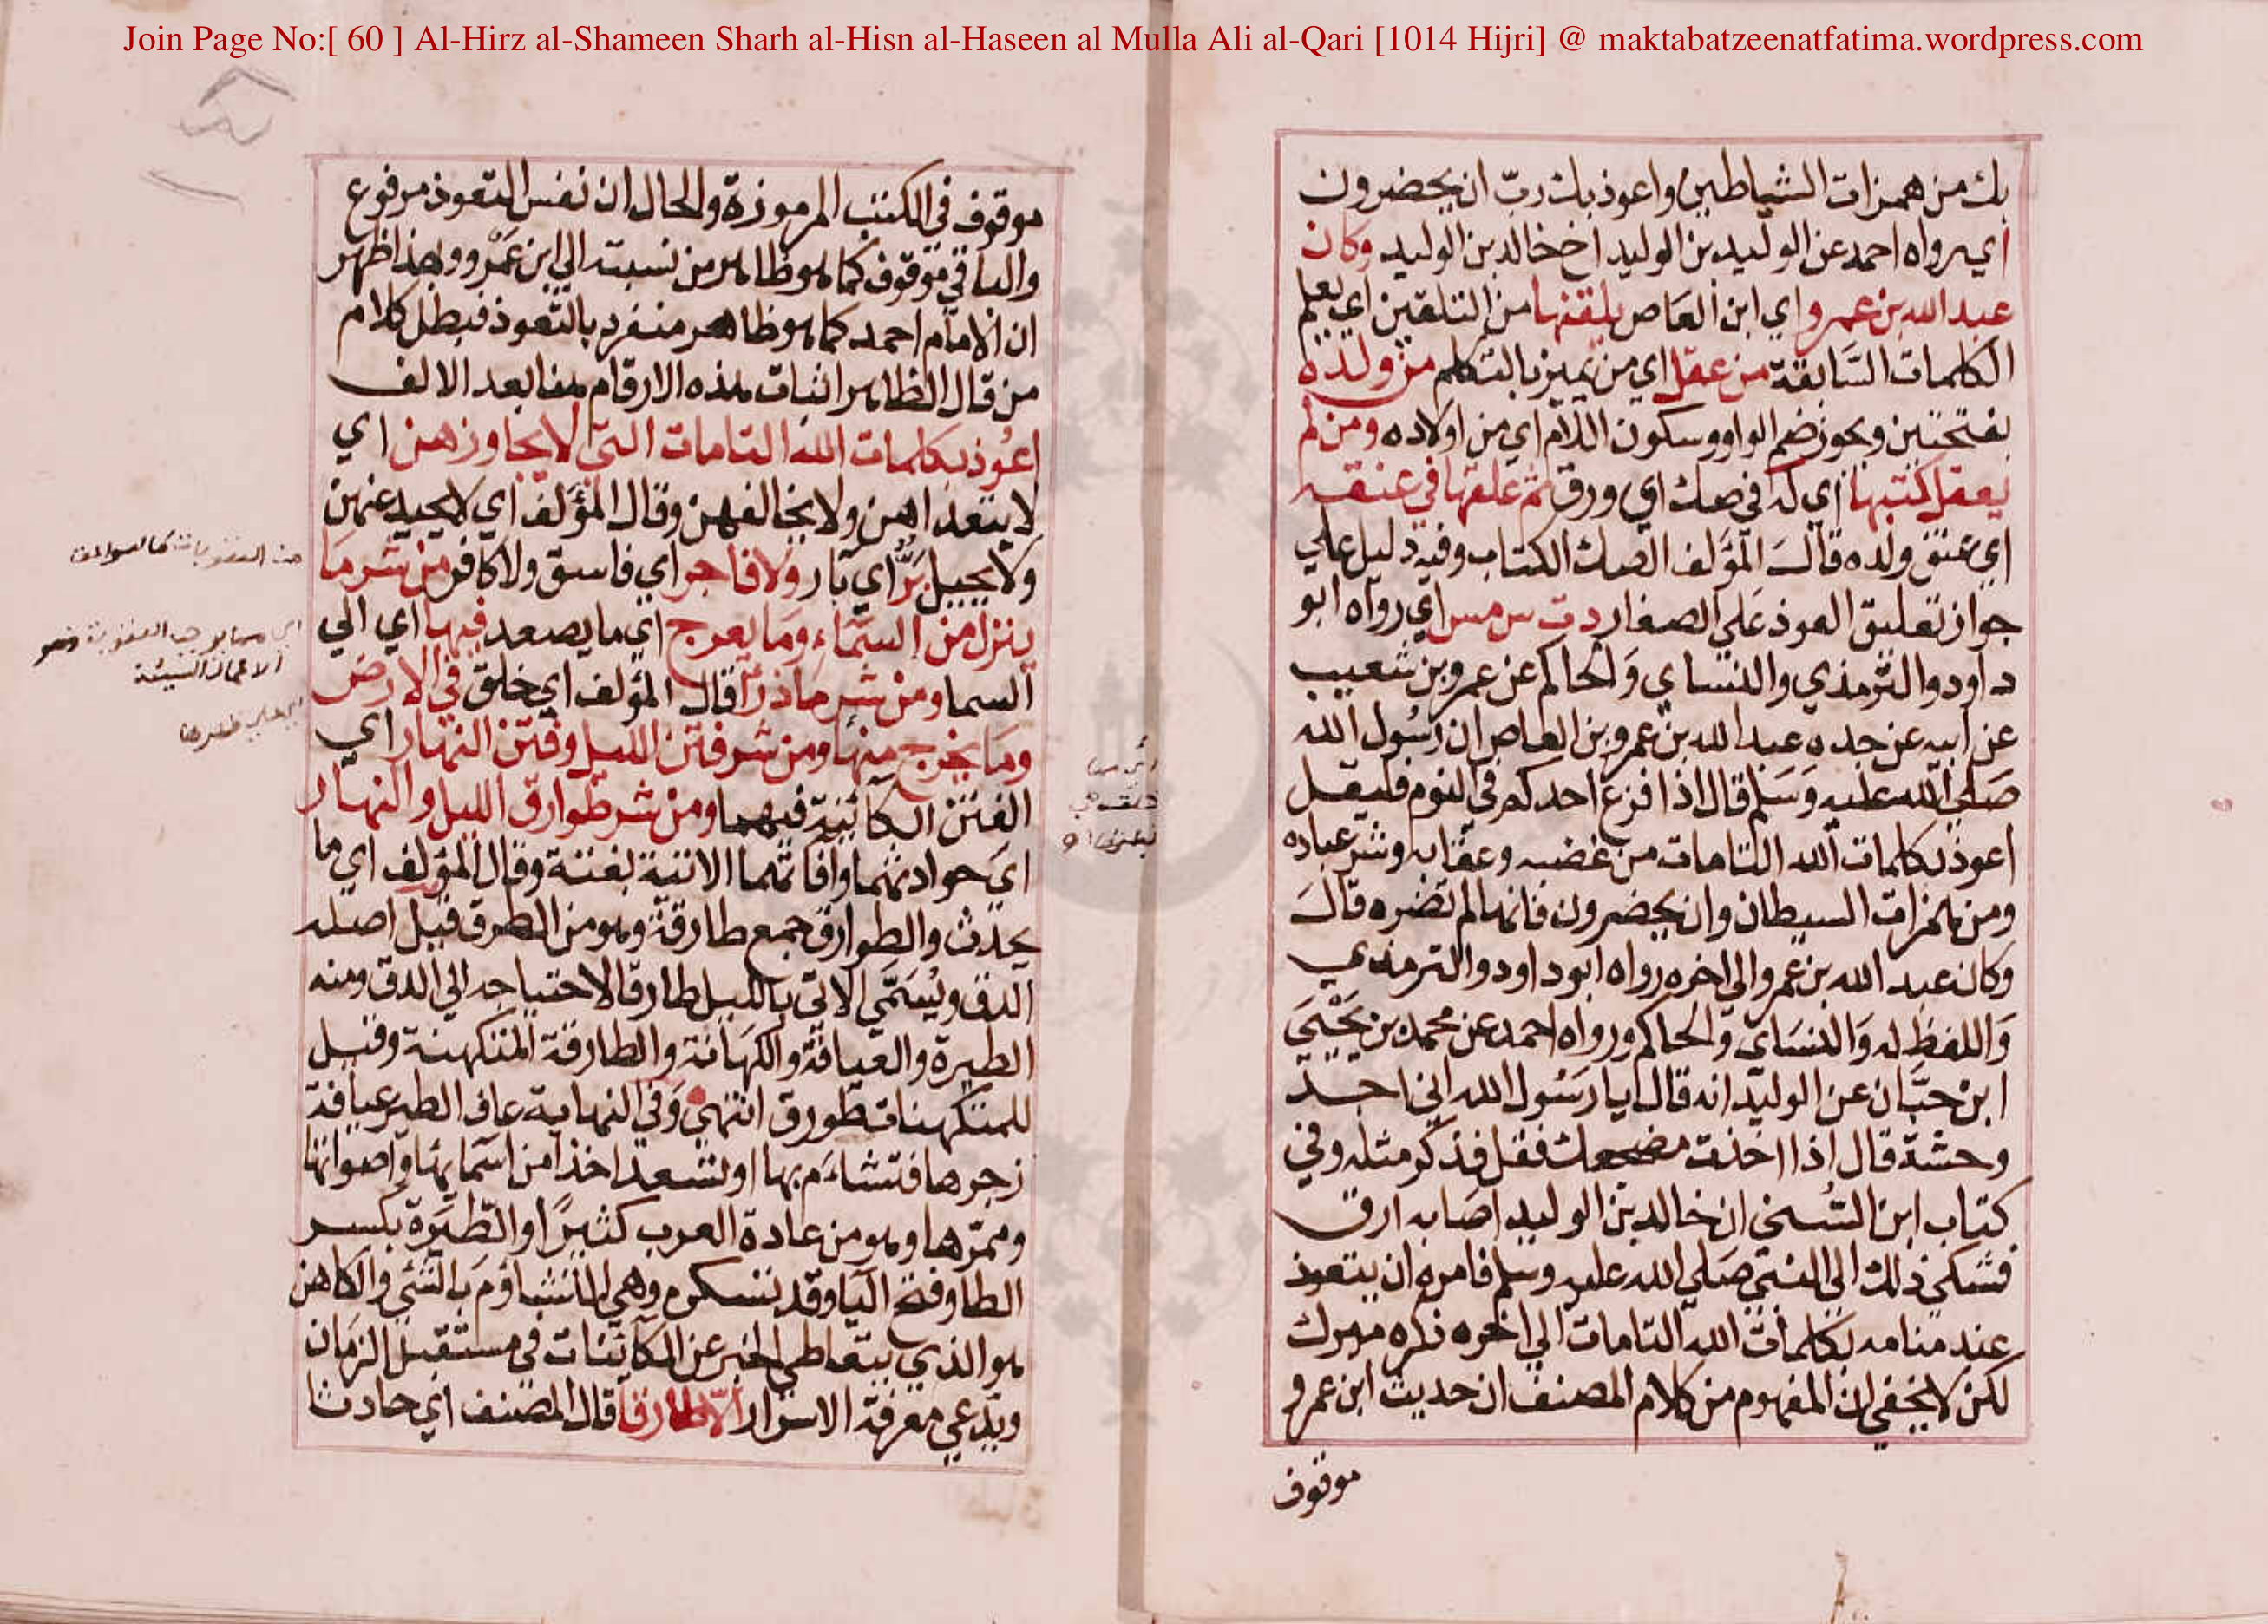 Join Page No:[ 60 ] Al-Hirz al-Shameen Sharh al-Hisn al-Haseen al Mulla Ali al-Qari [1014 Hijri] @ maktabatzeenatfatima.wordpress.com
بك من همزات الشياطين واعوذ بك ربّ ان يحضرون
اي رواه احمد عن الوليد بن الوليد اخ خالد بن الوليد وكان
عبد الله بن عمرو اي ابن العاص يلقنها من التلقين اي يعلم
الكلمات السَّابقة من عقل اي من يميز بالتكلم من ولده
بفتحتين ويجوز ضم الواو وسكون اللام اي من اولاده ومن لم
يعقل كتبها اي له في صك اي ورق ثم علقها في عنقه
اي عنق ولده قال المؤلف الصك الكتاب وفيه دليل علي
جواز تعليق العوذ علي الصغار د ت س مس اي رواه ابو
داود والترمذي والنساي والحاكم عن عمرو بن شعيب
عن ابيه عن جده عبد الله بن عمرو بن العاص ان رسول الله
صلي الله عليه وسلم قال اذا فزع احدكم في النوم فليقل
اعوذ بكلمات الله التامات من غضبه وعقابه وشر عباده
ومن همزات السيطان وان يحضرون فانها لم تضره قال
وكان عبد الله بن عمرو الي اخره رواه ابو داود والترمذي
واللفظ له والنساي والحاكم ورواه احمد عن محمد بن يَحْيَي
ابن حبَّان عن الوليد انه قال يا رسول الله اني اجد
وحشة قال اذا اخذت مضجعك فقل فذكر مثله وفي
كتاب ابن السُّني ان خالد بن الوليد اصابه ارق
فشكي ذلك الي النبي صلي الله عليه وسلم فامره ان يتعوذ
عند منامه بكلمات الله التامات الي اخره ذكره ميرك
لكن لا يخفي ان المفهوم من كلام المصنف ان حديث ابن عمرو
موقوف
موقوف في الكتب المرموزة والحال ان نفس التعوذ مرفوع
والباقي موقوف كما هو ظاهر من نسبته الي ابن عَمْرو وبهذا ظهر
ان الامام احمد كما هو ظاهر منفرد بالتعوذ فبطل كلام
من قال الظاهر اثبات هذه الارقام هنا بعد الالف
اعوذ بكلمات الله التامات التي لا يجاوزهن اي
لا يتعداهن ولا يخالفهن وقال المؤلف اي لا يحيد عنهن
ولا يميل بَرٌّ اي بار ولا فاجر اي فاسق ولا كافر من شر ما
ينزل من السمّاء وما يعرج اي ما يصعد فيها اي الي
السما ومن شر ما ذرأ قال المؤلف اي خلق في الارض
وما يخرج منها ومن شر فتن الليل وفتن النهار اي
الفتن الكائنة فيهما ومن شر طوارق الليل والنهار
اي حوادثهما وافاتهما الاتية بغتة وقال المؤلف اي ما
يحدث والطوارق جمع طارقة وهو من الطرق قيل اصله
الدق ويُسَمَّي الاتي بالليل طارقا لاحتياجه الي الدق ومنه
الطيرة والعيافة والكهانة والطارقة المتكهنة وقيل
للمتكهنات طورق انتهي وفي النهاية عاف الطير عيافة
زجرها فتشاءم بها او تسعد اخذا من اسمايها واصواتها
وممرّها وهو من عادة العرب كثيرًا والطِّيَرة بكسر
الطا وفتح اليا وقد تسكن وهي التشاؤم بالشي والكاهن
هو الذي يتعاطي الخبر عن الكائنات في مستقبل الزمان
ويدعي معرفة الاسرار الا طارقا قال المصنف اي حادثا
الاعمال السيئة